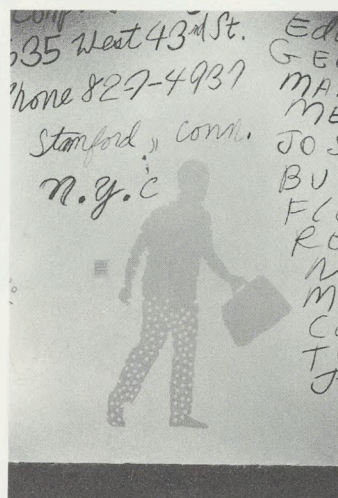 635 West 43rd St.
Phone 827-4937
Stamford, Conn.
N.Y.C
Ed
GE
MA
ME
JOS
BU
FL
RO
N
M
Co
T
J